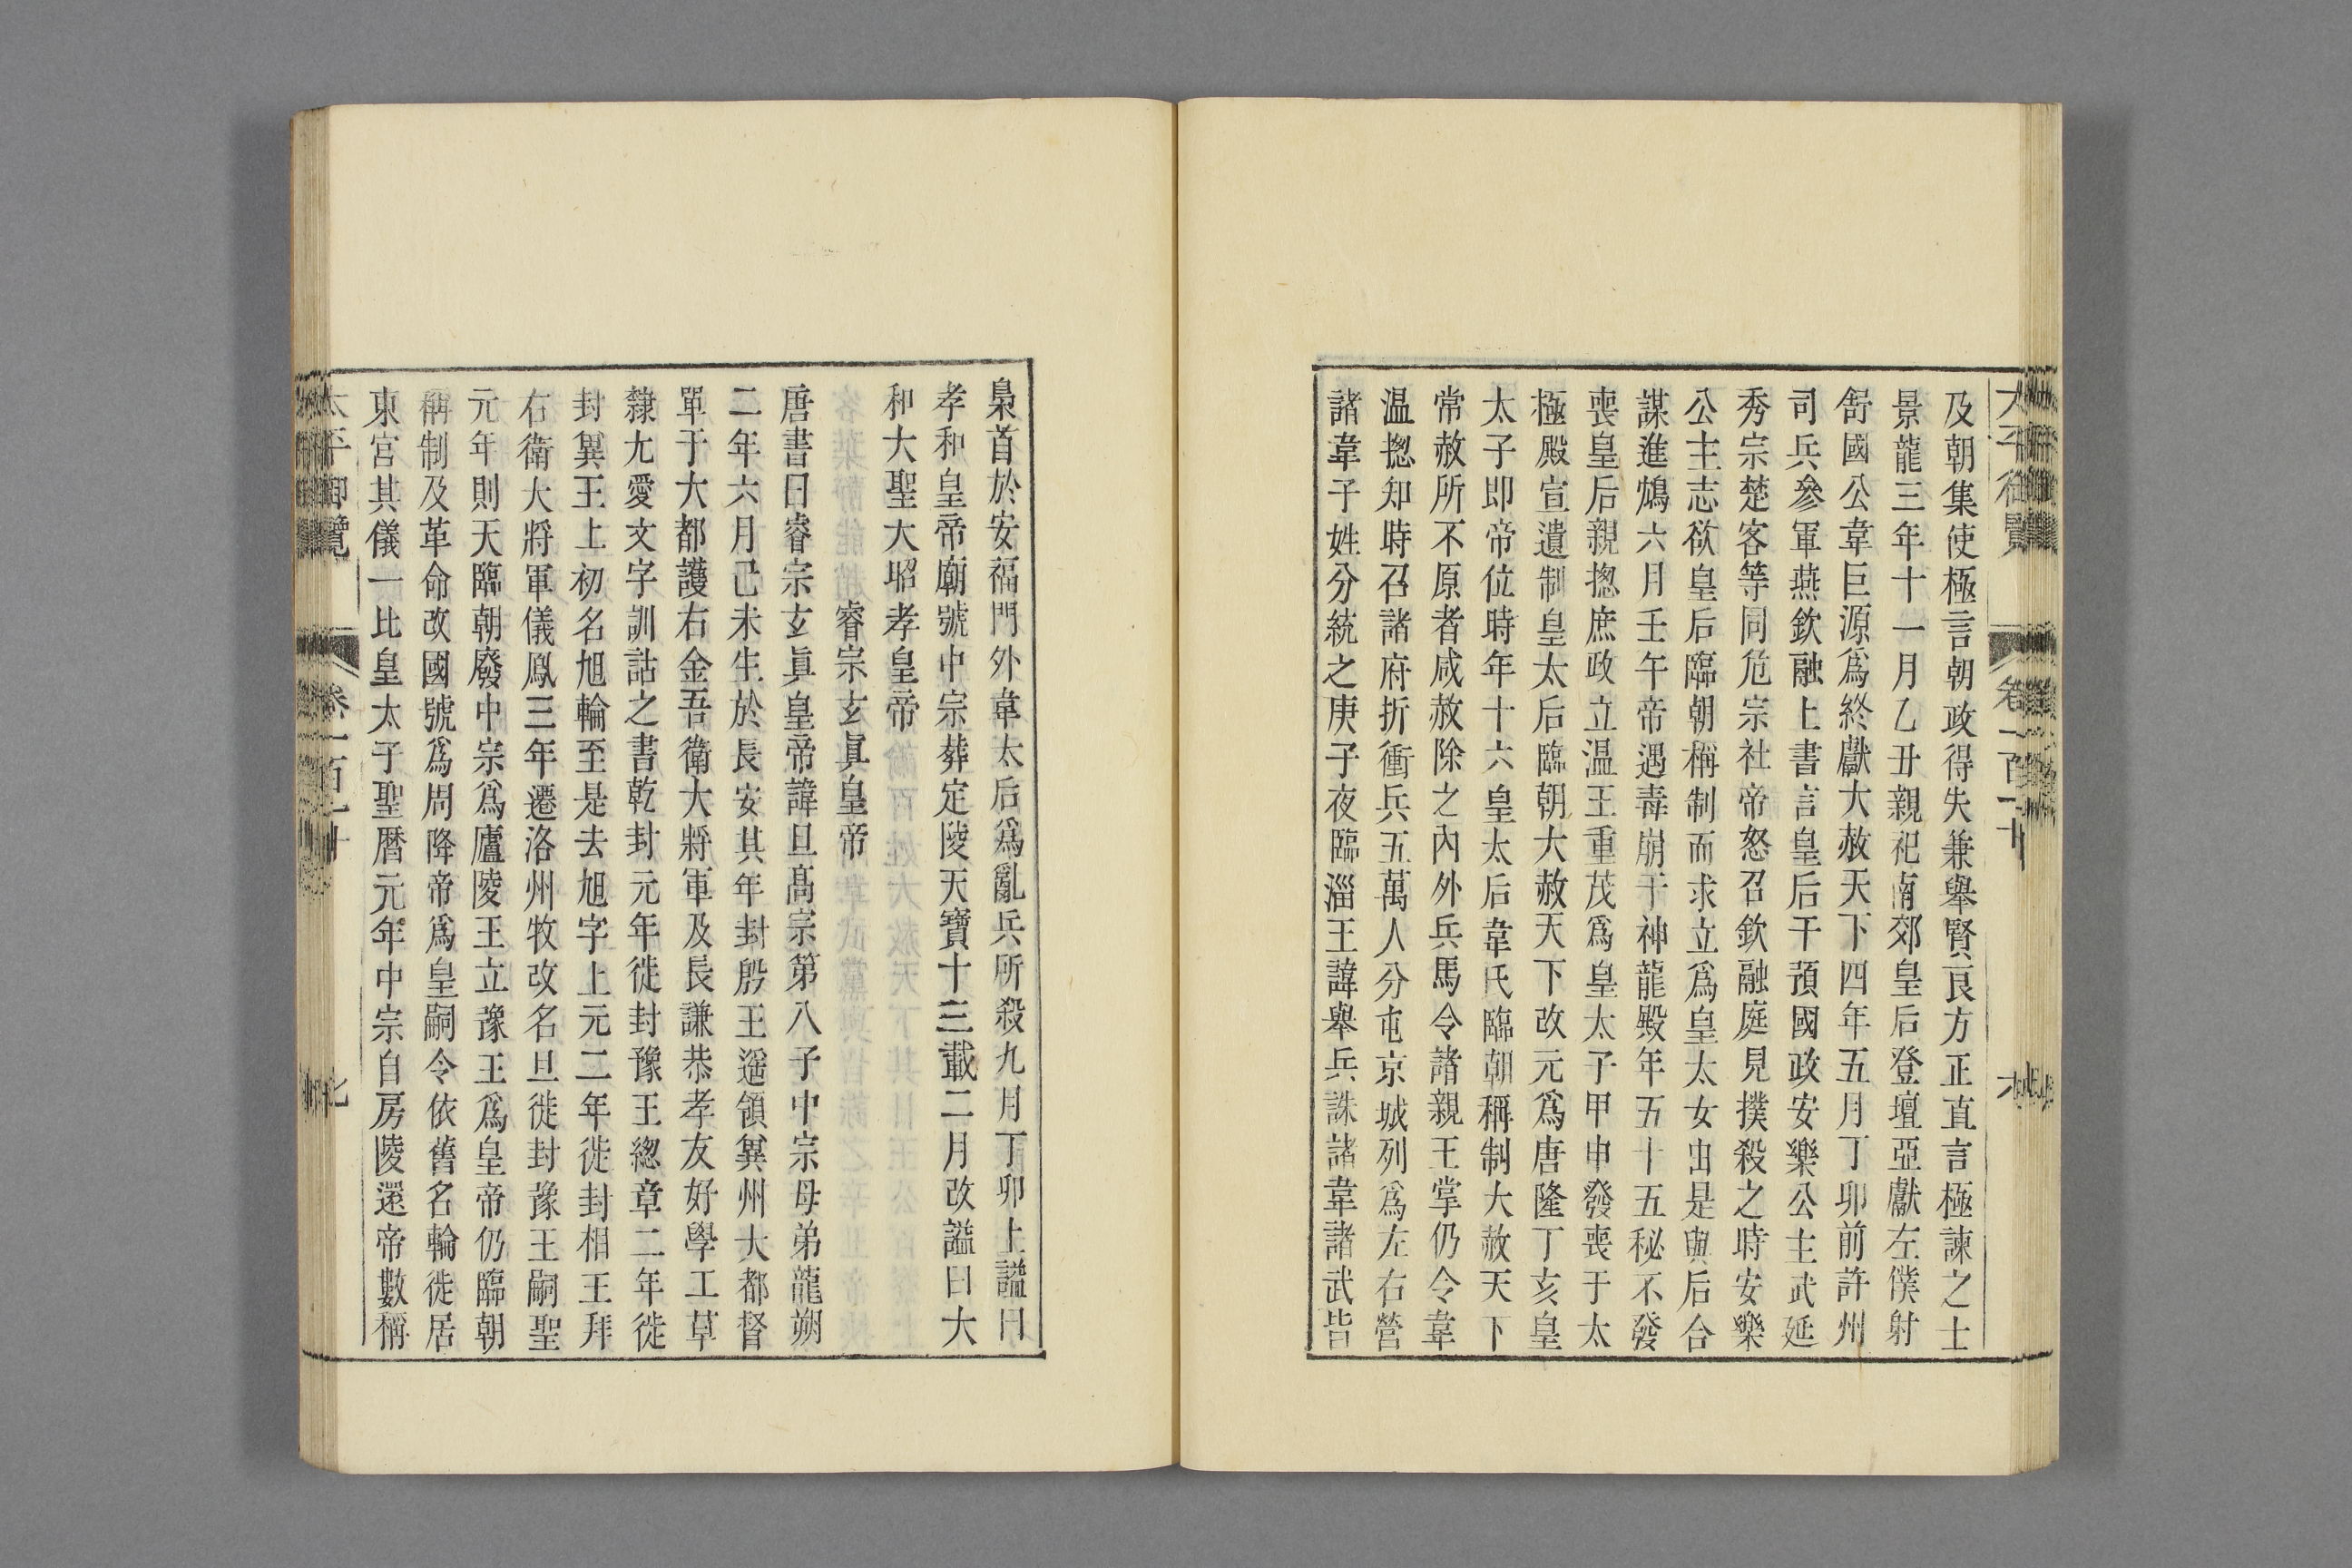 及朝集使極言朝政得失兼舉賢良方正直言極諫之士
景龍三年十一月乙丑親祀南郊皇后登壇亞獻左僕射
舒國公韋巨源爲終獻大赦天下四年五月丁卯前許州
司兵參軍燕欽融上書言皇后干預國政安樂公主武延
秀宗楚客等同危宗社帝怒召欽融庭見撲殺之時安樂
公主志欲皇后臨朝稱制而求立爲皇太女由是與后合
謀進鴆六月壬午帝遇毒崩于神龍殿年五十五秘不發
喪皇后親揔庶政立温王重茂爲皇太子甲申發喪于太
極殿宣遺制皇太后臨朝大赦天下改元爲唐隆丁亥皇
太子即帝位時年十六皇太后韋氏臨朝稱制大赦天下
常赦所不原者咸赦除之內外兵馬令諸親王掌仍令韋
温揔知時召諸府折衝兵五萬人分屯京城列爲左右營
諸韋子姓分統之庚子夜臨淄王諱舉兵誅諸韋諸武皆
梟首於安福門外韋太后爲亂兵所殺九月丁卯上謚曰
孝和皇帝廟號中宗葬定陵天寶十三載二月改謚曰大
和大聖大昭孝皇帝
睿宗玄眞皇帝
唐書曰睿宗玄眞皇帝諱旦髙宗第八子中宗母弟龍朔
二年六月己未生於長安其年封殷王遥領兾州大都督
單于大都護右金吾衛大將軍及長謙恭孝友好學工草
隸尤愛文字訓詁之書乾封元年徙封豫王緫章二年徙
封兾王上初名旭輪至是去旭字上元二年徙封相王拜
右衛大將軍儀鳳三年遷洛州牧改名旦徙封豫王嗣聖
元年則天臨朝廢中宗爲廬陵王立豫王爲皇帝仍臨朝
稱制及革命改國號爲周降帝爲皇嗣令依舊名輪徙居
東宮其儀一比皇太子聖曆元年中宗自房陵還帝數稱
太平御覽 卷一百一十 七